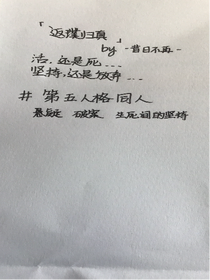 「返璞归真」
by -昔日不再-
活,还是死...
坚持,还是放弃...
# 第五人格同人
悬疑 破案 生死间的坚持